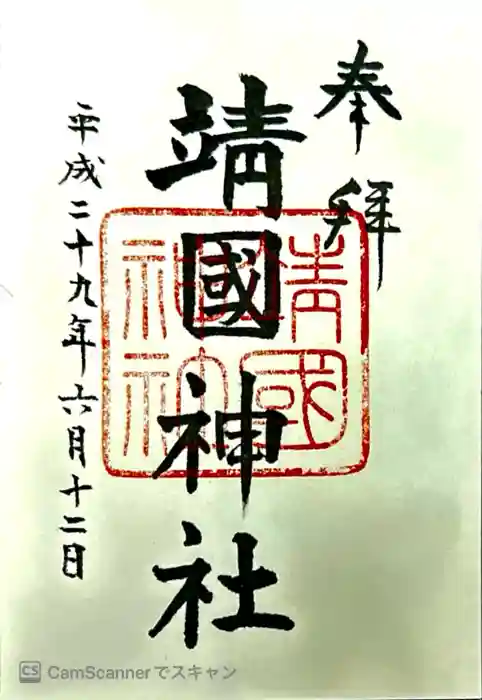 奉拝
靖國神社
靖國
神社
平成二十九年六月十二日
CS CamScannerでスキャン